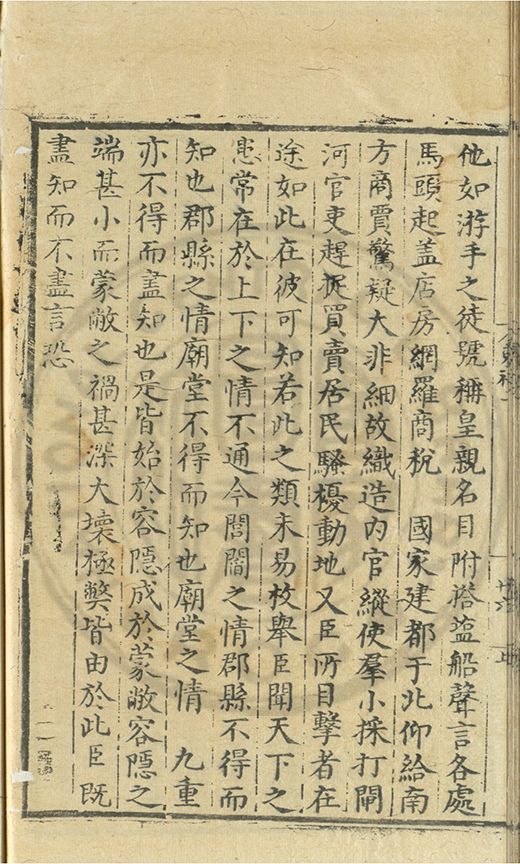 他如游手之徒號稱皇親名目附搭鹽船聲言各處
馬頭起盖店房網羅商稅　國家建都于北仰給南
方商賈驚疑大非細故織造内官縱使羣小採打閘
河官吏趕捉買賣居民騷擾動地又臣所目擊者在
途如此在彼可知若此之類未易枚舉臣聞天下之
患常在於上下之情不通今閭閻之情郡縣不得而
知也郡縣之情廟堂不得而知也廟堂之情　九重
亦不得而盡知也是皆始於容隱成於蒙敝容隱之
端甚小而蒙敝之禍甚深大壞極獘皆由於此臣既
盡知而不盡言恐